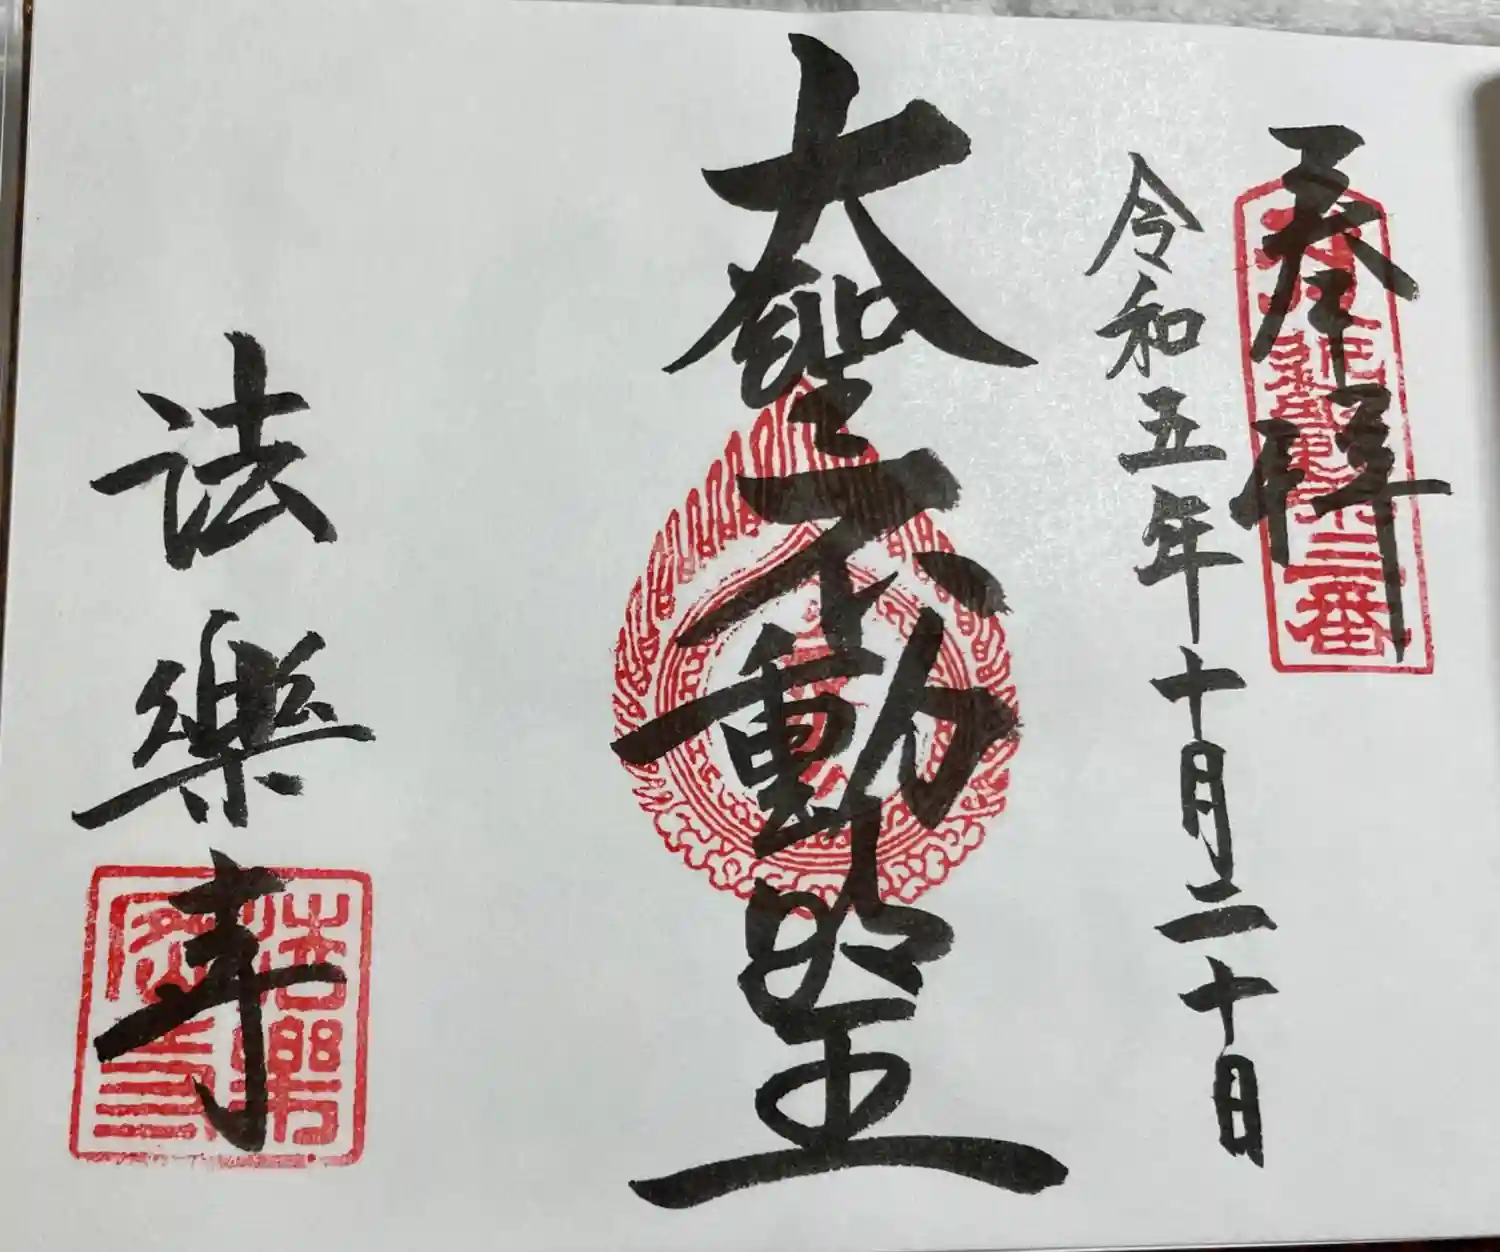 奉拝
令和五年十月二十日
大聖不動堂
法樂寺
法樂